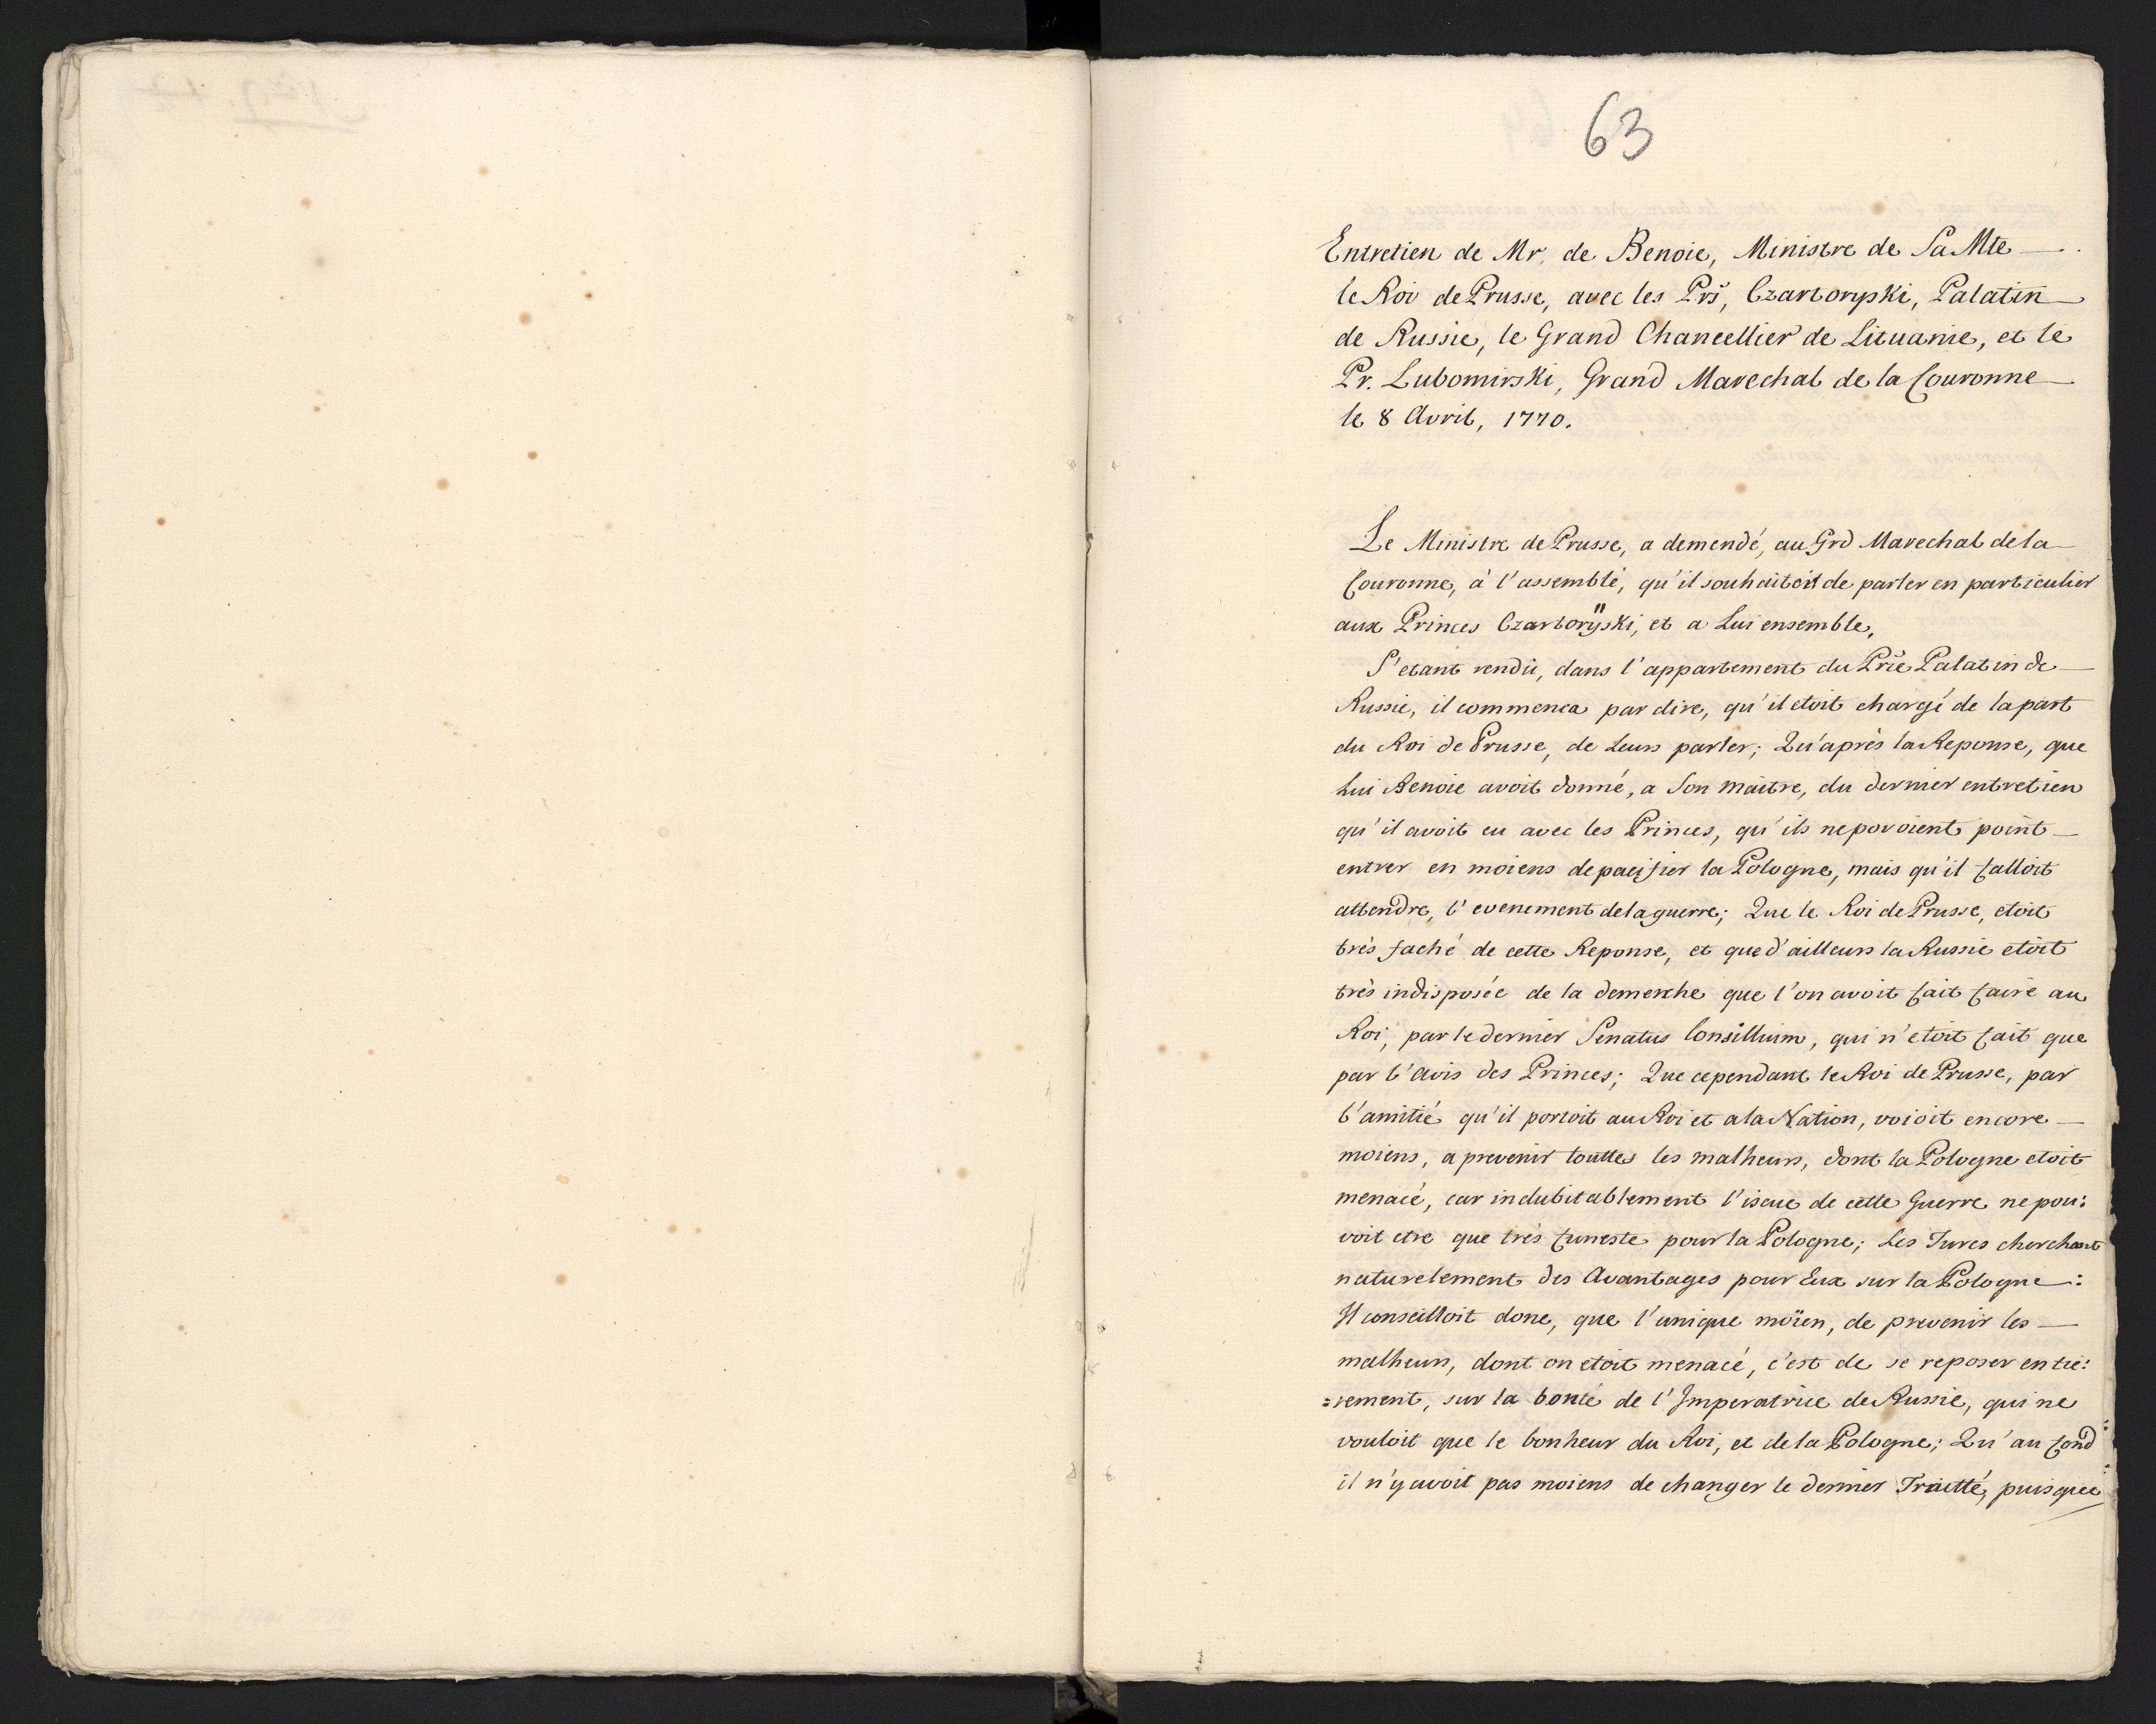 63
Entretien de Mr. de Benoie, Ministre de Sa Mte
le Roi de Prusse, avec les Prs, Czartoryski, Palatin
de Russie, le Grand Chancellier de Lituanie, et le
Pr. Lubomirski, Grand Marechal de la Couronne
le 8 Avril, 1770.
Le Ministre de Prusse, a demendé, au Grd Marechal de la
Couronne, à l'assemblé, qu'il souhaitoit de parler en particulier
aux Princes Czartoryski, et a Lui ensemble,
S'etant rendu, dans l'appartement du Prce Palatin de
Russie, il commenca par dire, qu'il etoit chargé de la part
du Roi de Prusse, de Leurs parler; Qu'après la Reponse, que
Lui Benoie avoit donné, a Son maitre, du dernier entretien
qu'il avoit eu avec les Princes, qu'ils ne povoient point
entrer en moiens de pacifier la Pologne, mais qu'il falloit
attendre, l'evenement de la guerre; Que le Roi de Prusse, etoit
très faché de cette Reponse, et que d'ailleurs la Russie etoit
très indisposée de la demerche que l'on avoit fait faire au
Roi, par le dernier Senatus Consillium, qui n'etoit fait que
par l'avis des Princes; Que cependant le Roi de Prusse, par
l'amitié qu'il portoit au Roi et a la Nation, voioit encore
moiens, a prevenir touttes les malheurs, dont la Pologne etoit
menacé, car indubitablement l'iscue de cette Guerre ne pou:
voit etre que très funeste pour la Pologne; Les Turcs cherchant
naturelement des Avantages pour Eux sur la Pologne:
Il conseilloit donc, que l'unique moïen, de prevenir les
malheurs, dont on etoit menacé, c'est de se reposer entie:
=rement, sur la bonté de l'Imperatrice de Russie, qui ne
vouloit que le bonheur du Roi, et de la Pologne; Qu'au fond
il n'y avoit pas moiens de changer le dernier Traitté, puisque